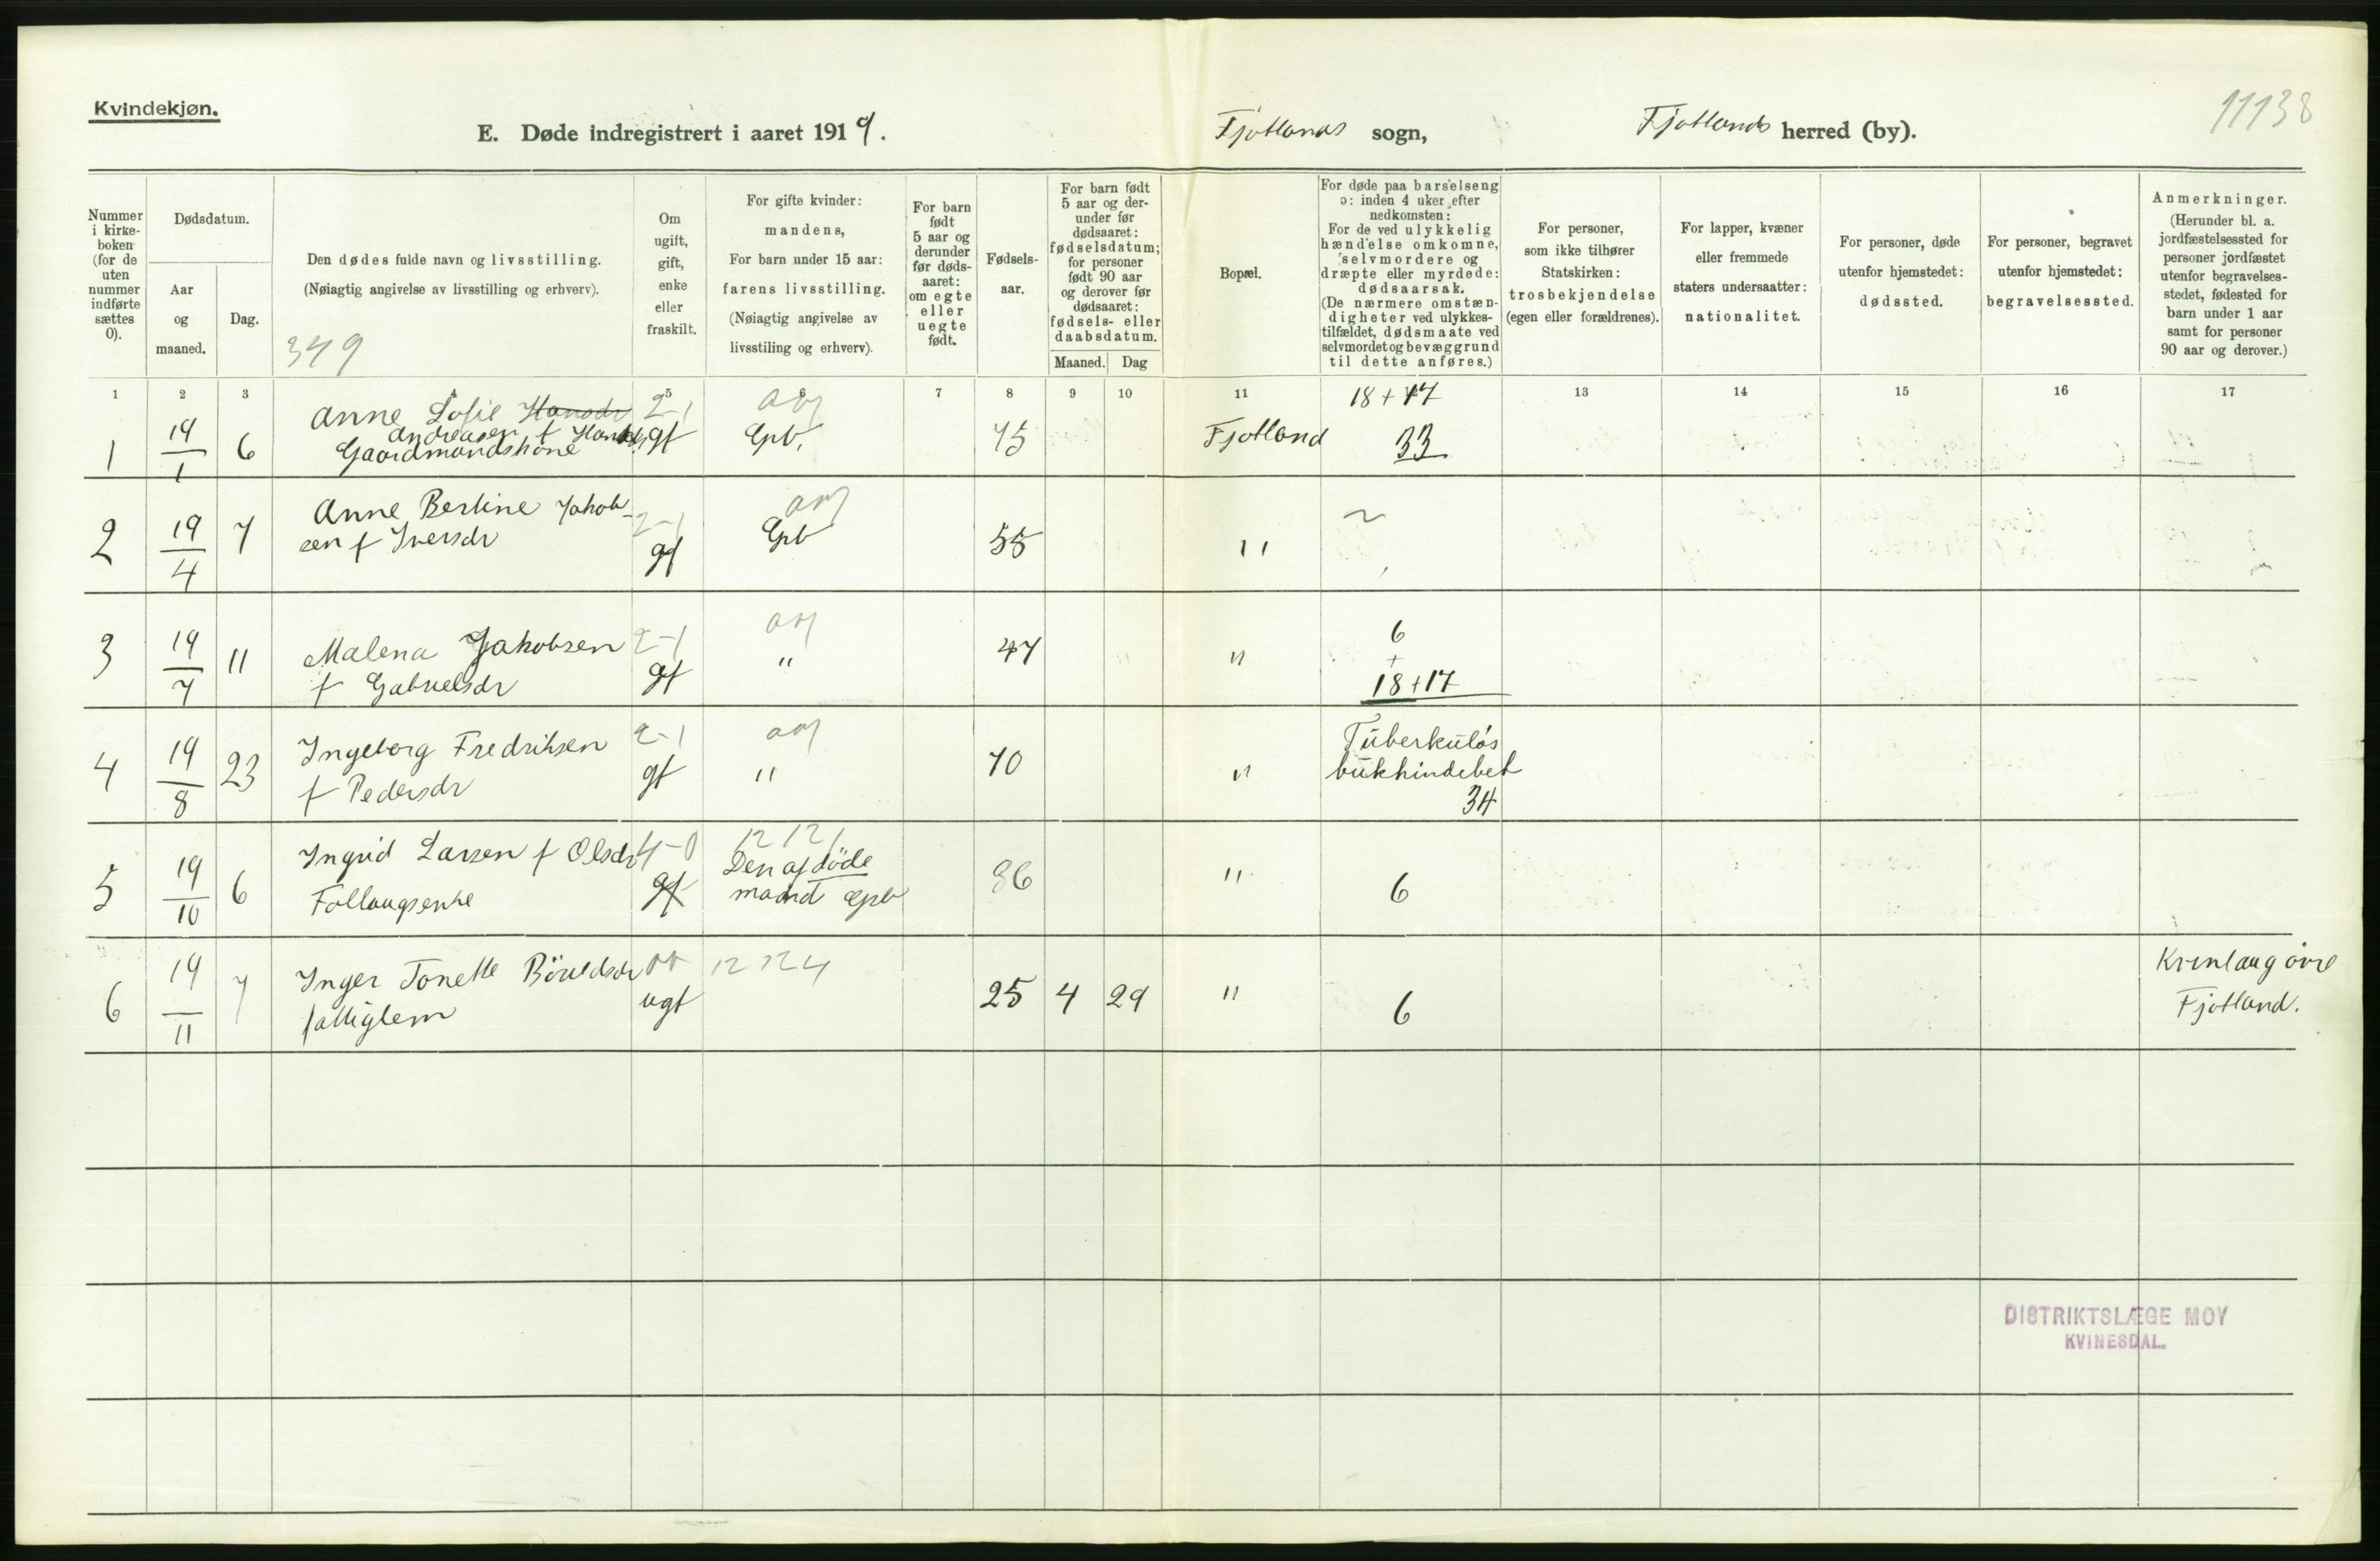 Kvindekjøn.
E. Døde indregistrert i aaret 1919.
Fjotlands sogn,
Fjotlands herred (by).
11138
Nummer
i kirke-
boken
(for de
uten
nummer
indførte
sættes
0).
Dødsdatum.
Aar
og
maaned.
Dag.
Den dødes fulde navn og livsstilling.
(Nøiagtig angivelse av livsstilling og erhverv).
349
Om
ugift,
gift,
enke
eller
fraskilt.
For gifte kvinder:
mandens,
For barn under 15 aar:
farens livsstilling.
(Nøiagtig angivelse av
livsstiling og erhverv).
For barn
født
5 aar og
derunder
før døds-
aaret:
om egte
eller
uegte
født.
Fødsels-
aar.
For barn født
5 aar og der-
under før
dødsaaret:
fødselsdatum;
for personer
født 90 aar
og derover før
dødsaaret:
fødsels- eller
daabsdatum.
Maaned. Dag
Bopæl.
For døde paa barselseng
ɔ: inden 4 uker efter
nedkomsten:
For de ved ulykkelig
hændelse omkomne,
selvmordere og
dræpte eller myrdede:
dødsaarsak.
(De nærmere omstæn-
digheter ved ulykkes-
tilfældet, dødsmaate ved
selvmordet og bevæggrund
til dette anføres.)
For personer,
som ikke tilhører
Statskirken:
trosbekjendelse
(egen eller forældrenes).
For lapper, kvæner
eller fremmede
staters undersaatter:
nationalitet.
For personer, døde
utenfor hjemstedet:
dødssted.
For personer, begravet
utenfor hjemstedet:
begravelsessted.
Anmerkninger.
(Herunder bl. a.
jordfæstelsessted for
personer jordfæstet
utenfor begravelses-
stedet, fødested for
barn under 1 aar
samt for personer
90 aar og derover.)
1 2 3 4 5 6 7 8 9 10 11 13 14 15 16 17
18+17
Anne Sofie Hansdr 2-1
1 19/1 6 Andreasen f Hansdr gf Gpb. 45 Fjotland 33
Gaardmandskone
Anne Bertine Jakob- 2-1
2 19/4 7 sen f Iversdr gf Gpb 55 "
3 19/7 11 Malena Jakobsen 2-1 " 47 " 6
+
f Gabrielsdr gf 18+17
4 19/8 23 Ingeborg Fredriksen 2-1 " 70 " Tuberkuløs
f Pedersdr gf bukhindebet
34
5 19/10 6 Ingrid Larsen f Olsdr 4-0 Den afdøde 36 " 6
Follaugsenke gf mand Gpb
6 19/11 7 Inger Tonette 12 25 4 29 " 6 Kvinlaug övre
fattiglem ugf Fjotland.
DISTRIKTSLÆGE MOY
KVINESDAL.